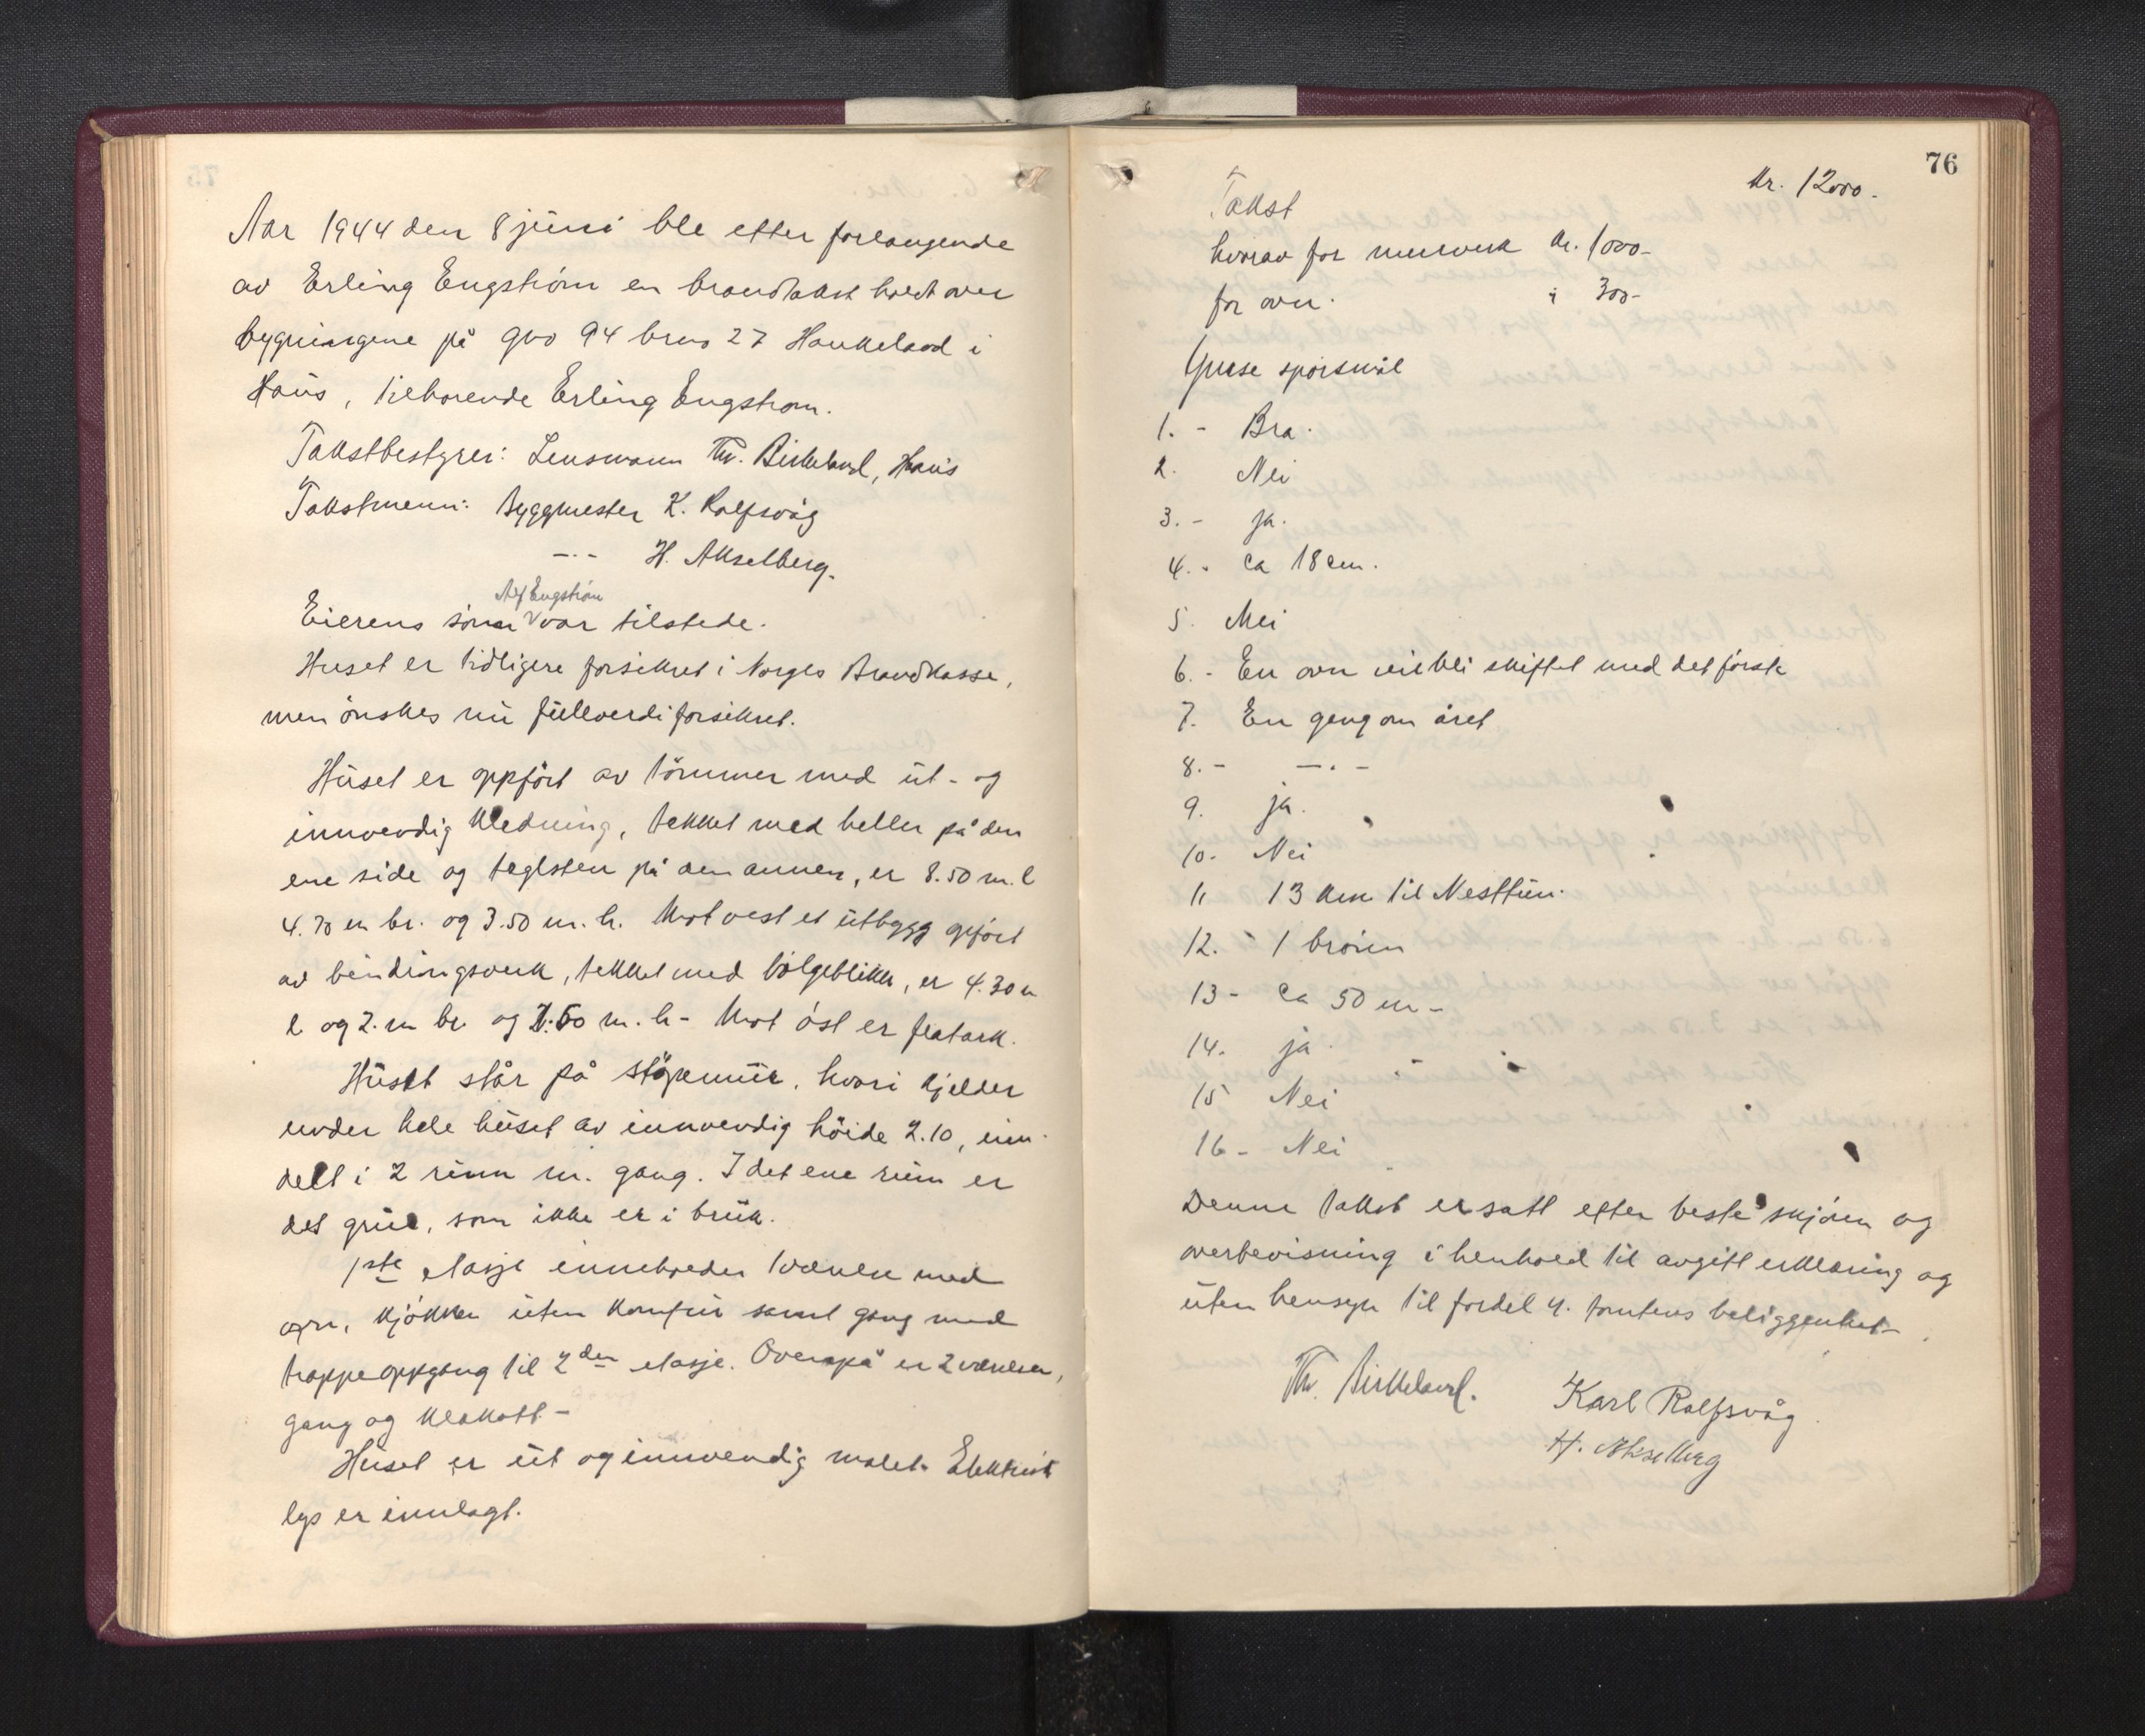 Aar 1944 den 8 juni ble efter forlangende
av Erling Engstrøm en brandtakst holdt over
bygningene på gno 94 brno 27 Haukeland i
Haus, tilhørende Erling Engstrøm.
Takstbestyrer: Lensmann Th. Birkeland, Haus
Takstmenn: Byggmester K. Rolfsvåg
—·— H. Akselberg.
Alf Engstrøm
Eierens sønn var tilstede.
Huset er tidligere forsikret i Norges Brandkasse,
men ønskes nu fullverdiforsikret.
Huset er oppført av tømmer med ut- og
innvendig kledning, tekket med heller på den
ene side og teglsten på den annen, er 8.50 m. l
4.70 m br. og 3.50 m. h. Mot vest et utbygg opført
av bindingsverk, tekket med bølgeblikk, er 4.30 m
l og 2. m br og 2.50 m. h - Mot øst er flatark.
Huset står på støpemur, hvori kjelder
under hele huset av innvendig høide 2.10, inn-
delt i 2 rum m. gang. I det ene rum er
det grue, som ikke er i bruk.
1ste etasje inneholder 1 værelse med
ovn, kjøkken uten komfur samt gang med
trappeoppgang til 2den etasje. Ovenpå er 2 værelser,
gang og klekott -
Huset er ut og innvendig malet. Elektrisk
lys er innlagt.
76
Takst kr. 12000.-
hvorav for murverk kr. 1000-
for ovn. " 300-
Gruse spørsmål
1. - Bra.
2. Nei
3. - ja.
4. - ca 18 cm.
5. Nei
6. - En ovn vil bli skiftet med det første
7. En gang om året
8. - —·—
9. ja.
10- Nei
11 13 km til Nesttun.
12. - 1 brønn
13- ca 50 m-
14. ja.
15 Nei
16- Nei
Denne takst er satt efter beste skjønn og
overbevisning i henhold til avgitt erklæring og
uten hensyn til fordel v. tomtens beliggenhet-.
Th. Birkeland.
Karl Rolfsvåg
H. Akselberg